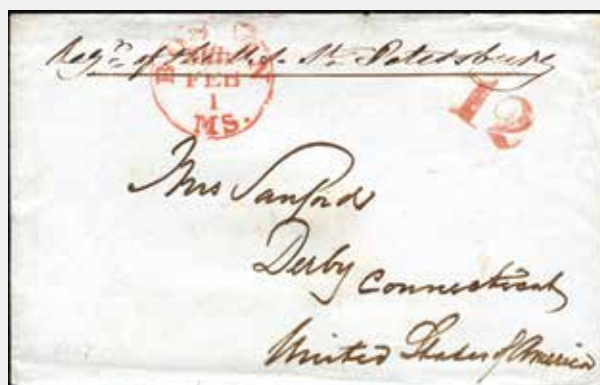 of the U.S. St. Petersburg
BOSTON
FEB
1
MS.
12
Mrs Sanford
Derby
Connecticut
United States of America